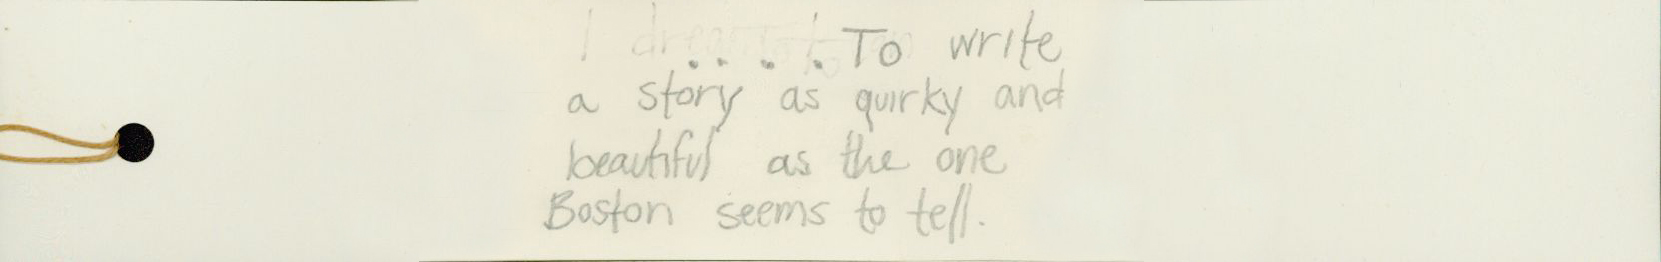 I dream . . . . To write
a story as quirky and
beautiful as the one
Boston seems to tell.